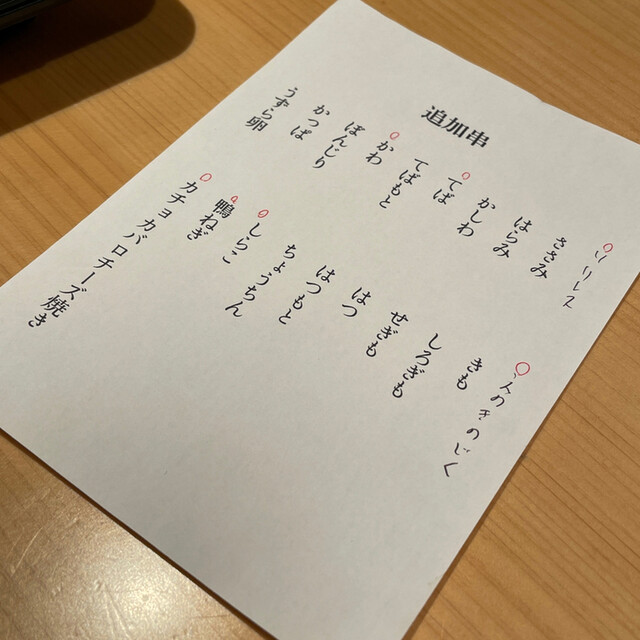 追加串
ソリレス
ささみ
はらみ
かしわ
てば
てばもと
かわ
ぼんじり
かっぱ
うずら卵
えのきのじく
きも
しろぎも
せぎも
はつ
はつもと
ちょうちん
しらこ
鴨ねぎ
カチョカバロチーズ焼き